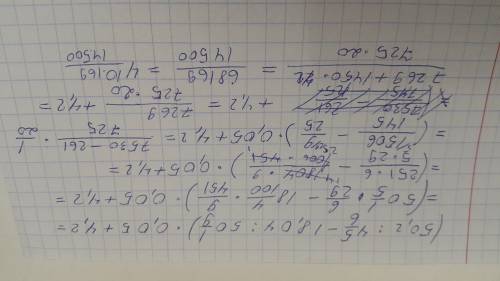 (50,2 : 4 5/6 − 18,04 : 50 1/9) · 0,05 + 4,2 =
= (50 1/5 · 6/29 − 18 4/100 · 9/451) · 0,05 + 4,2 =
= (251·6/5·29 − ) · 0,05 + 4,2 =
= (1506/145 − 9/25) · 0,05 + 4,2 = 7530 − 261/725 · 1/20
+ 4,2 = 7269/725·20 + 4,2 =
7269 + 1450 · /725·20 = 68169/14500 = 4 10169/14500